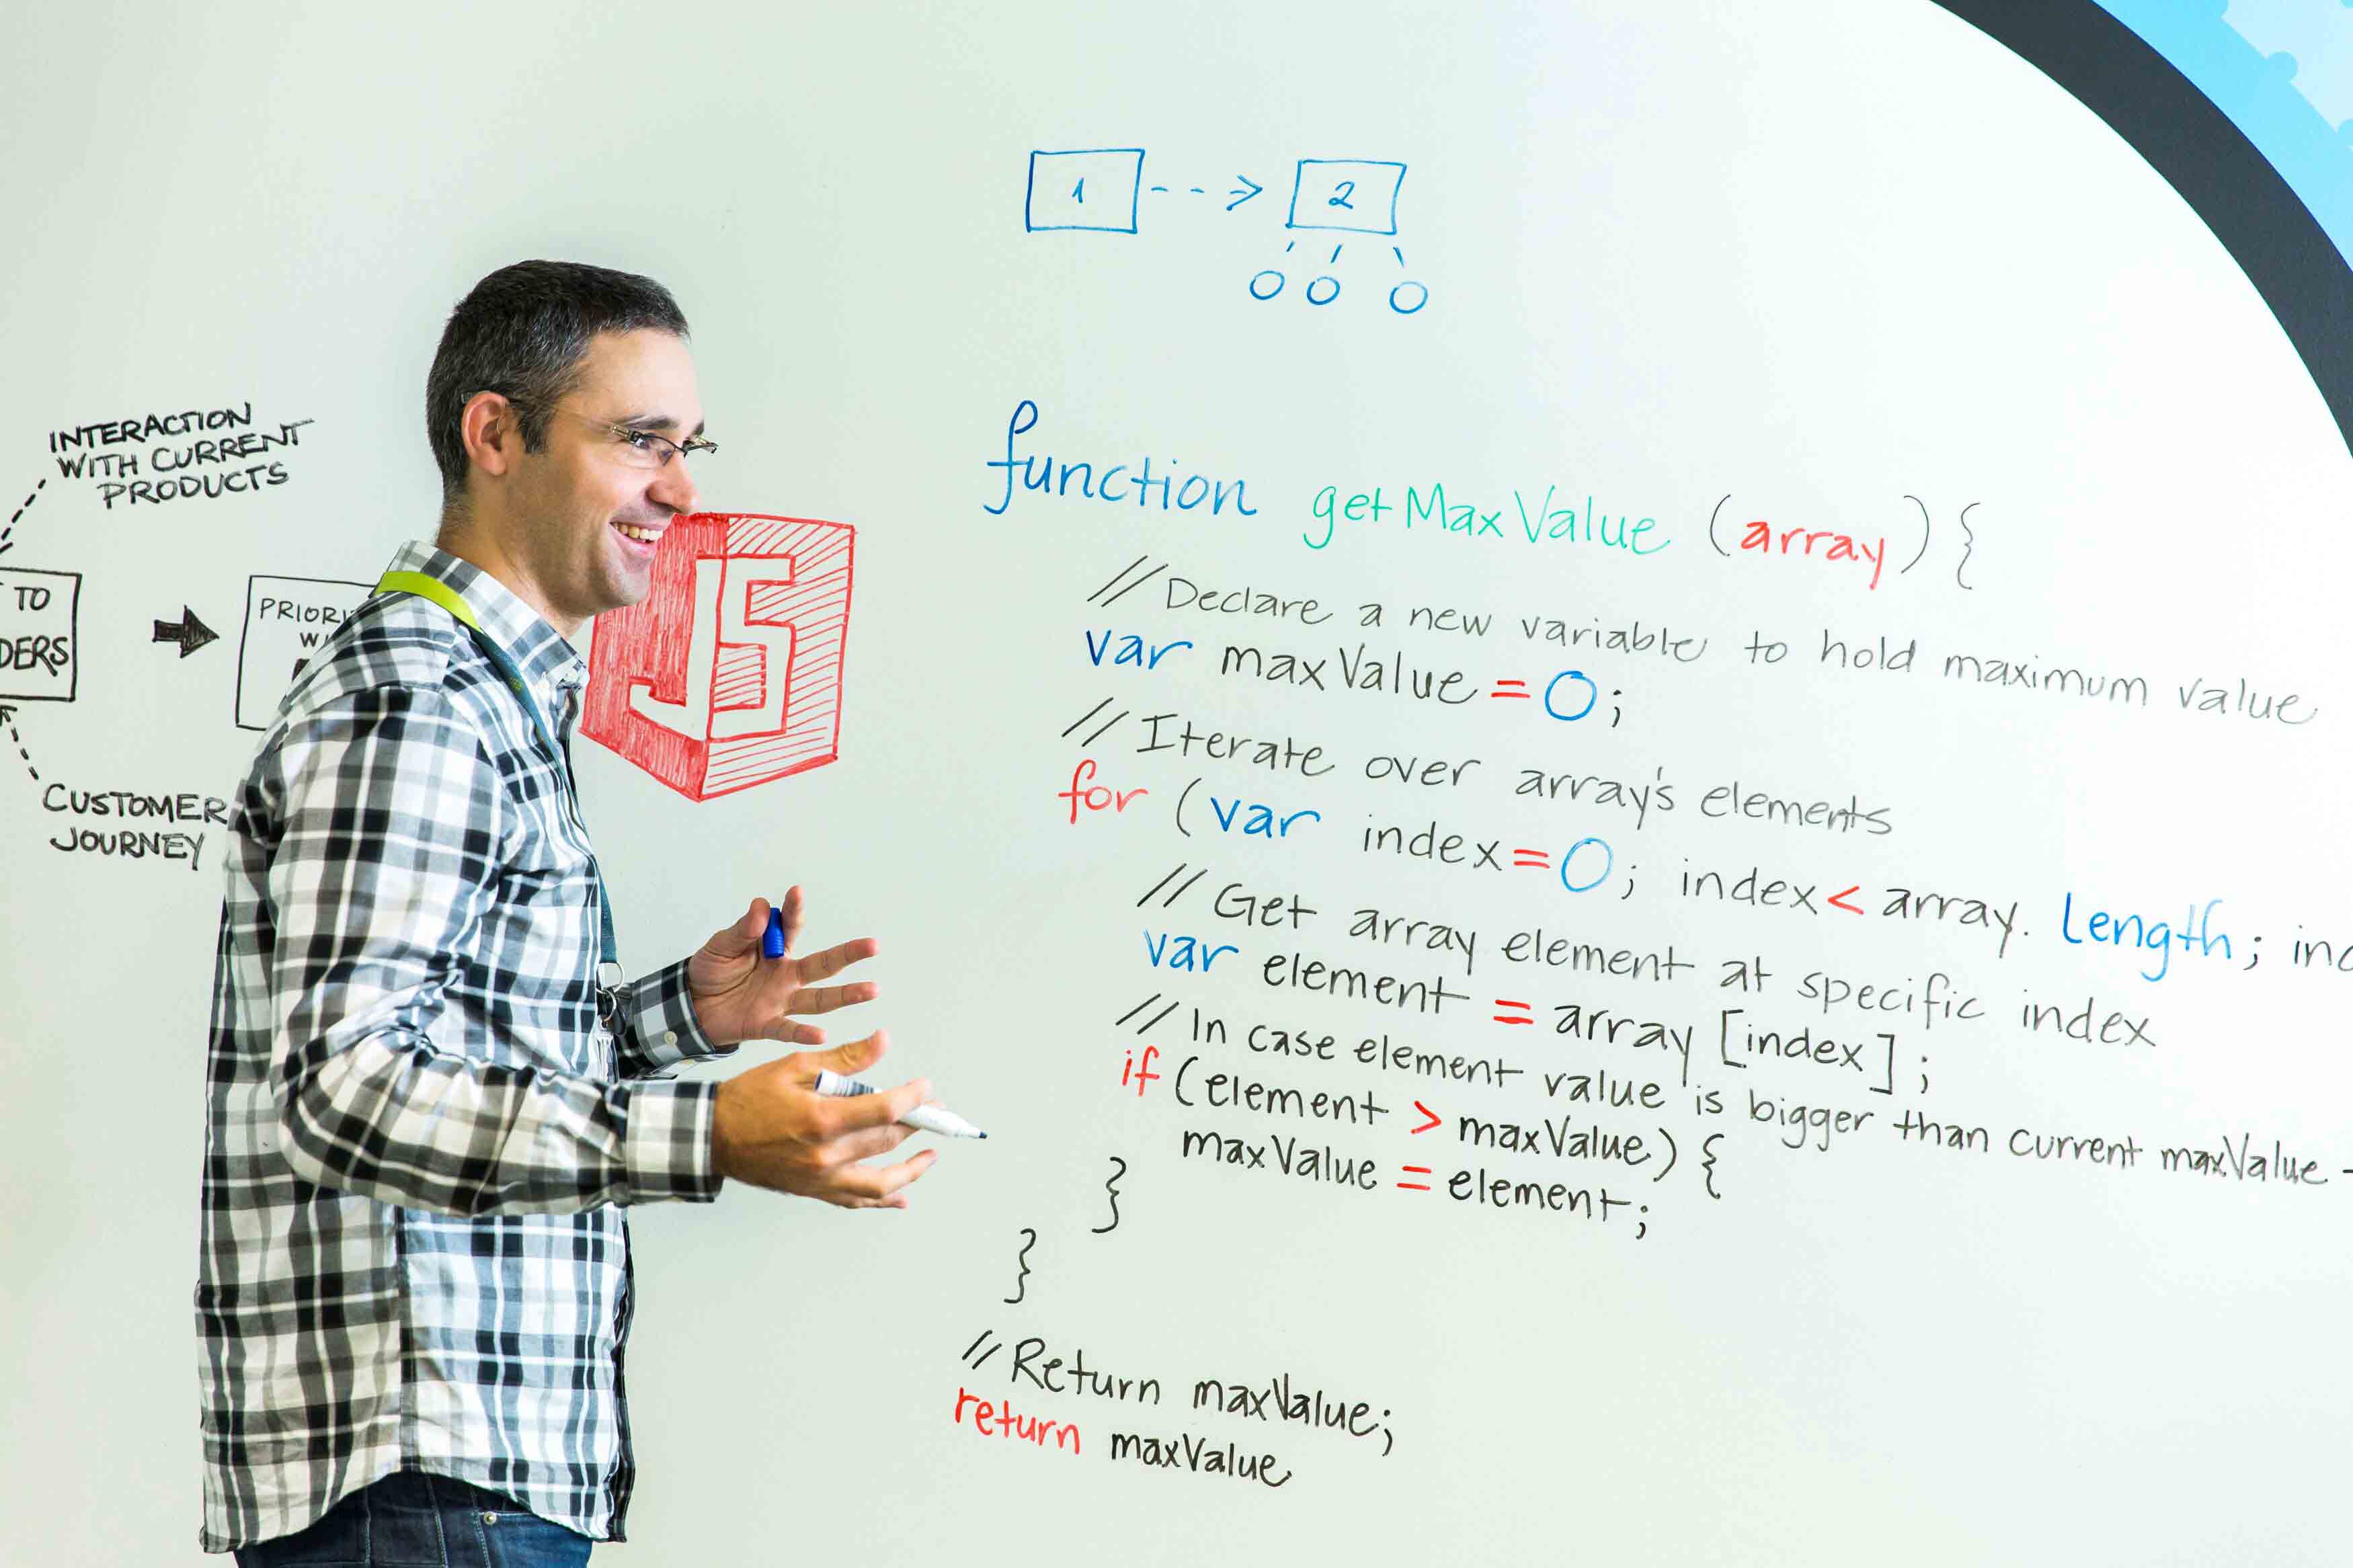 1 2
INTERACTION
WITH CURRENT
PRODUCTS
TO
DERS
PRIORI
W
CUSTOMER
JOURNEY
JS
function getMaxValue (array) {
// Declare a new variable to hold maximum value
var maxValue = 0;
// Iterate over array's elements
for (var index=0; index< array. Length; inc
// Get array element at specific index
var element = array [index];
// In case element value is bigger than current maxValue -
if (element > maxValue) {
maxValue = element;
}
}
// Return maxValue;
return maxValue